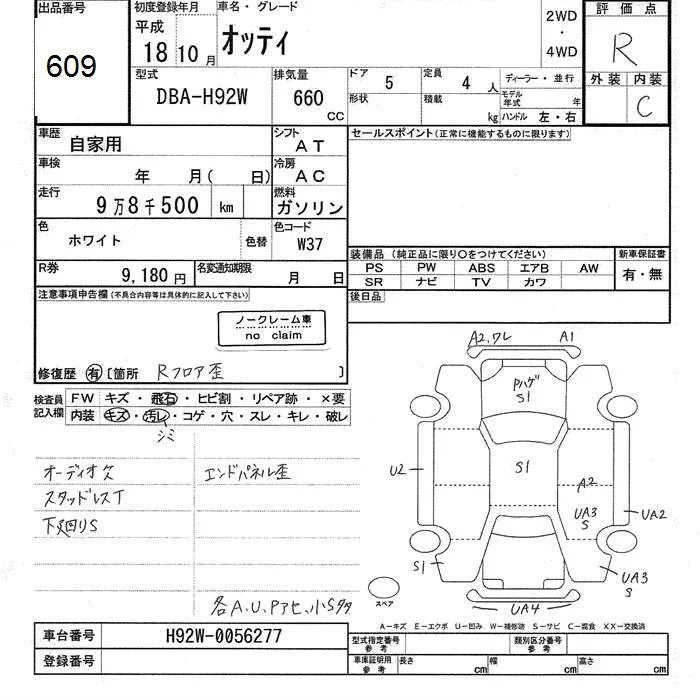 出品番号
609
初度登録年月
平成
18 10 月
車名・グレード
オッティ
2WD
・
4WD
評 価 点
R
外装 内装
C
型式
DBA-H92W
排気量
660
CC
ドア 5
形状
定員 4 人
積載 kg
ディーラー・並行
モデル年式 年
ハンドル 左・右
車歴
自家用
シフト
AT
車検
年 月( 日)
冷房
AC
走行
9万8千500 km
燃料
ガソリン
色
ホワイト
色替
色コード
W37
R券
9,180 円
名変通知期限
月 日
セールスポイント(正常に機能するものに限ります)
装備品 (純正品に限り○をつけてください)
新車保証書
PS PW ABS エアB AW
SR ナビ TV カワ
有・無
後日品
注意事項申告欄(不具合内容等は具体的に記入して下さい)
ノークレーム車
no claim
修復歴 有 〔箇所 Rフロア歪 〕
検査員記入欄
FW キズ・飛石・ヒビ割・リペア跡・×要
内装 キズ・汚レ・コゲ・穴・スレ・キレ・破レ
シミ
オーディオ欠
エンドパネル歪
スタッドレスT
下廻りS
各A.U.Pアセ、小Sタタ
A2,ワレ
A1
Pハゲ
S1
U2
S1
A2
UA3
S
UA2
S1
UA3
S
UA4
スペア
A-キズ E-エクボ U-凹み W-補修跡 S-サビ C-腐食 XX-交換済
車台番号
H92W-0056277
登録番号
型式指定番号
参考
類別区分番号
参考
車庫証明用
参考
長さ cm
幅 cm
高さ cm